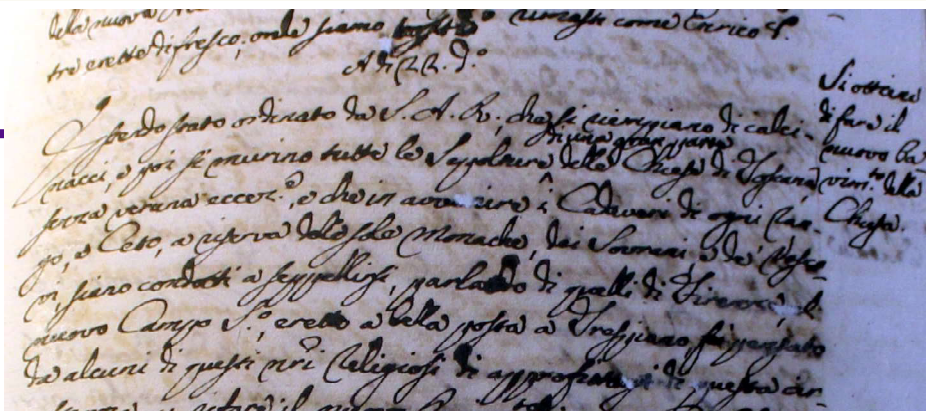 della nuova
tre erette di fresco, onde siamo rimasti come Enrico 4.
A dì 22. d.o
Essendo stato ordinato da S. A. R., che si riempiano di calci-
di una gran parte
nacci, e poi si murino tutte le Sepolture delle Chiese di Toscana
senza veruna eccez.e, e che in avvenire i Cadaveri di ogni ran-
go, e Ceto, a riserva delle sole Monache, dei Sovrani e de' Vesco-
vi, siano condotti a seppellirsi, parlando di quelli di Firenze, al
nuovo Campo S.o, eretto a bella posta a Trespiano fù pensato
da alcuni di questi nri Religiosi di approfittarsi di questa cir-
il
Si ottiene
di fare il
nuovo pa
vim.to della
Chiesa.